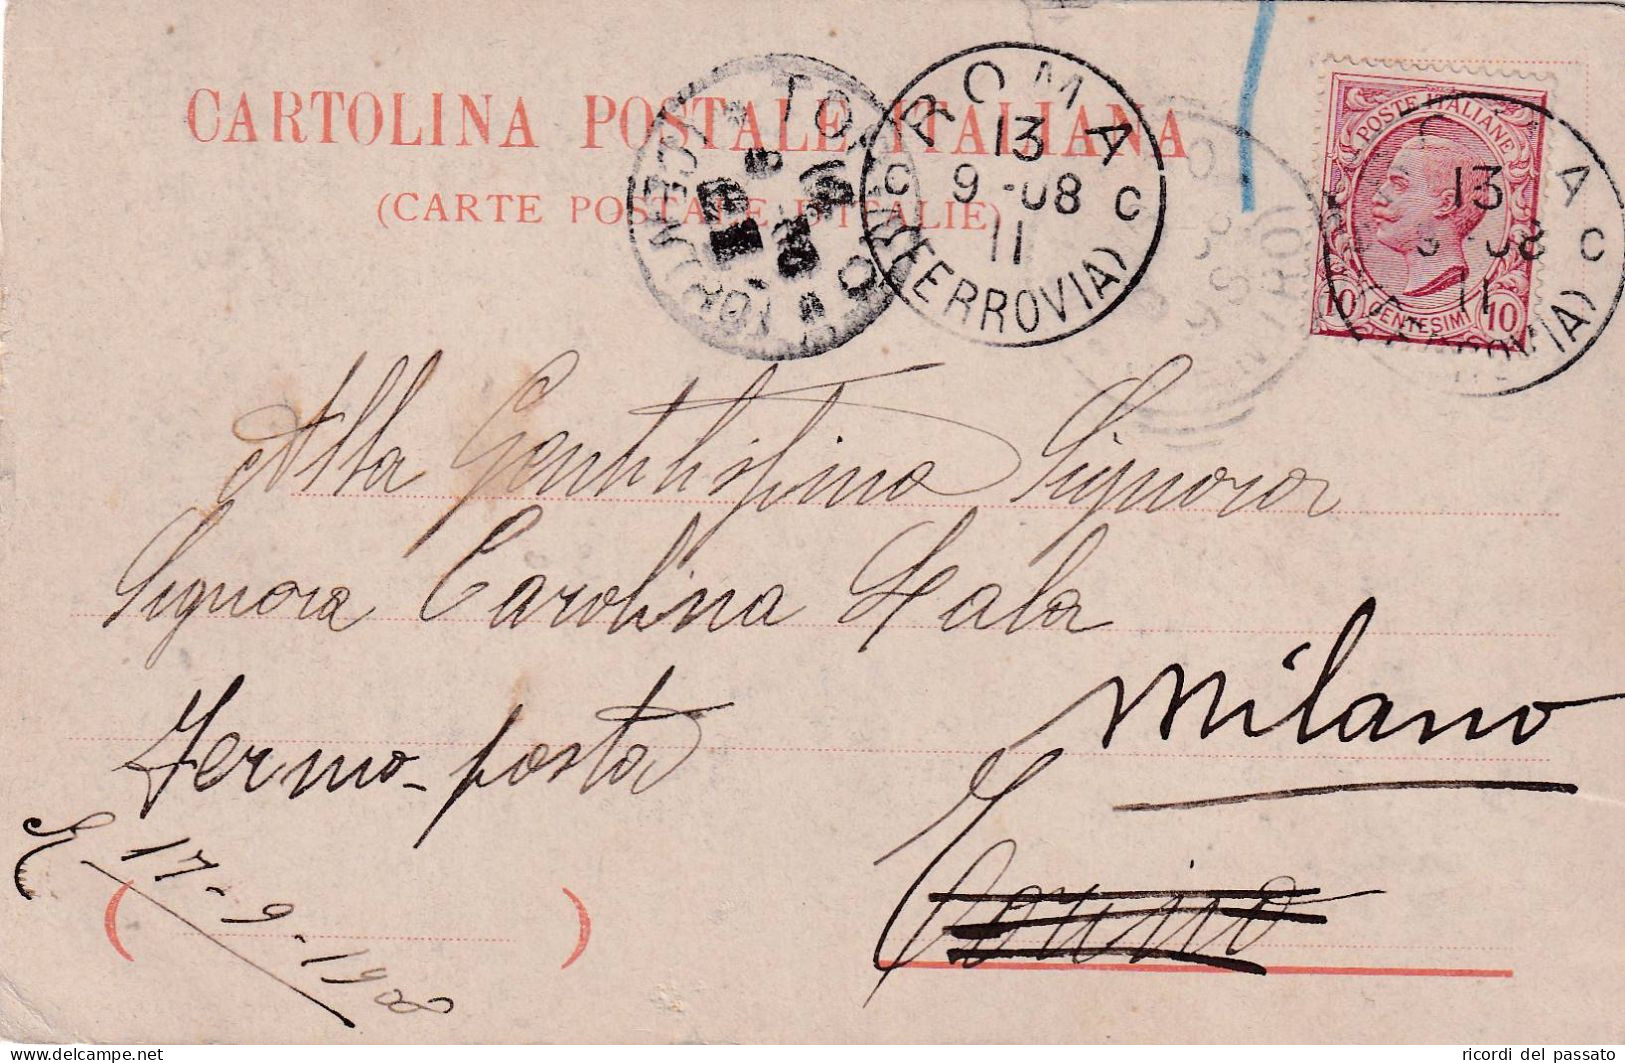 CARTOLINA POSTALE ITALIANA
(CARTE POSTALE D'ITALIE)
ROMA
13
9-08
11
C C
(FERROVIA)
TORINO
POSTE ITALIANE
10 CENTESIMI 10
A
13
9-08 C
11
(FERROVIA)
Alla Gentilissima Signora
Signora Carolina Sala
Fermo-posta
Milano
Torino
17-9-1908
delcampe.net
ricordi del passato